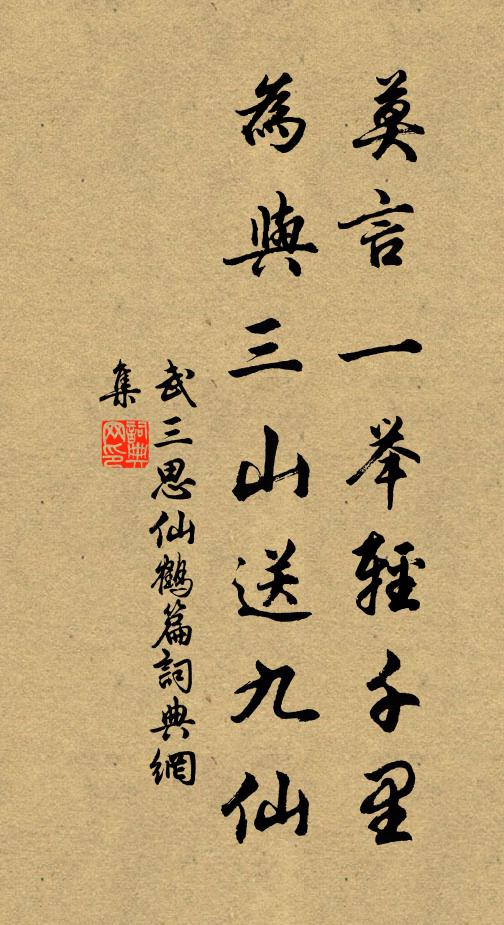 莫言一举輕千里
為與三山送九仙
武三思仙鶴篇詞典網
集
詞典网印